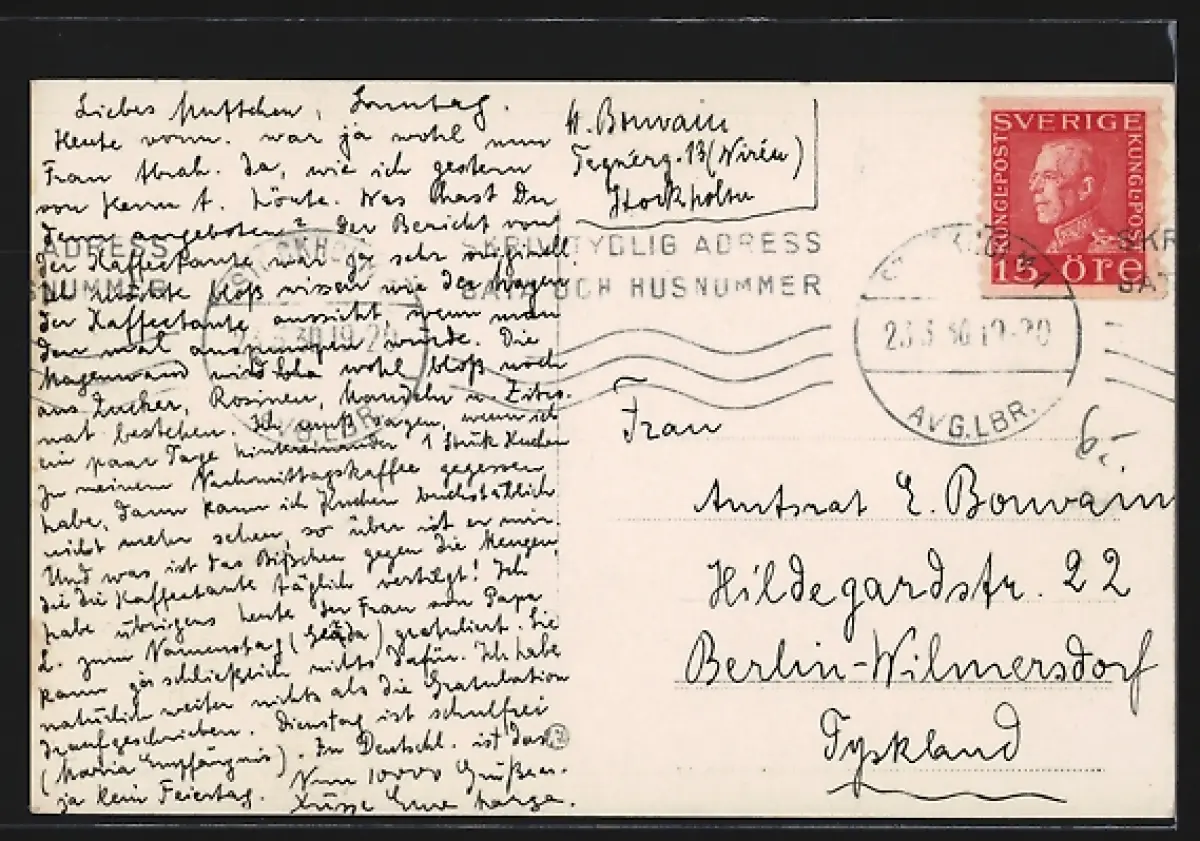 Liebes Muttchen, Sonntag.
Heute vorm. war ja wohl nun
Frau Abrah. da, wie ich gestern
von Herrn A. hörte. Was hast Du
denn angeboten? Der Bericht von
der Kaffeetante war ja sehr originell.
Ich möchte bloß wissen wie der Magen
der Kaffeetante aussieht wenn man
den mal auspumpen würde. Die
Magenwand wird wohl bloß noch
aus Zucker, Rosinen, Mandeln u. Zitro-
nat bestehen. Ich muß sagen, wenn ich
ein paar Tage hintereinander 1 Stück Kuchen
zu meinem Nachmittagskaffee gegessen
habe, dann kann ich Kuchen buchstäblich
nicht mehr sehen, so über ist er mir.
Und was ist das Bißchen gegen die Mengen,
die die Kaffeetante täglich vertilgt! Ich
habe übrigens heute der Frau von Papa
L. zum Namenstag gratuliert. Sie
kann ja schließlich nichts dafür. Ich habe
natürlich weiter nichts als die Gratulation
draufgeschrieben. Dienstag ist schulfrei
(Mariä Empfängnis). In Deutschl. ist das
ja kein Feiertag. Nun 10000 Grüße u.
Küsse Eure Marga.
H. Bouvain
Tegnérg. 13 (Nirén)
Stockholm
SVERIGE
KUNGL·POST
KUNGL·POST
15 ÖRE
ADRESS
SNUMMER
SKRIV TYDLIG ADRESS
GATA OCH HUSNUMMER
SKR
GAT
STOCKHOLM 1
23.3.30.19-20
AVG.LBR.
STOCKHOLM 1
23 3 30 19-20
AVG.LBR.
6,-
Frau
Amtsrat E. Bouvain
Hildegardstr. 22
Berlin-Wilmersdorf
Tyskland